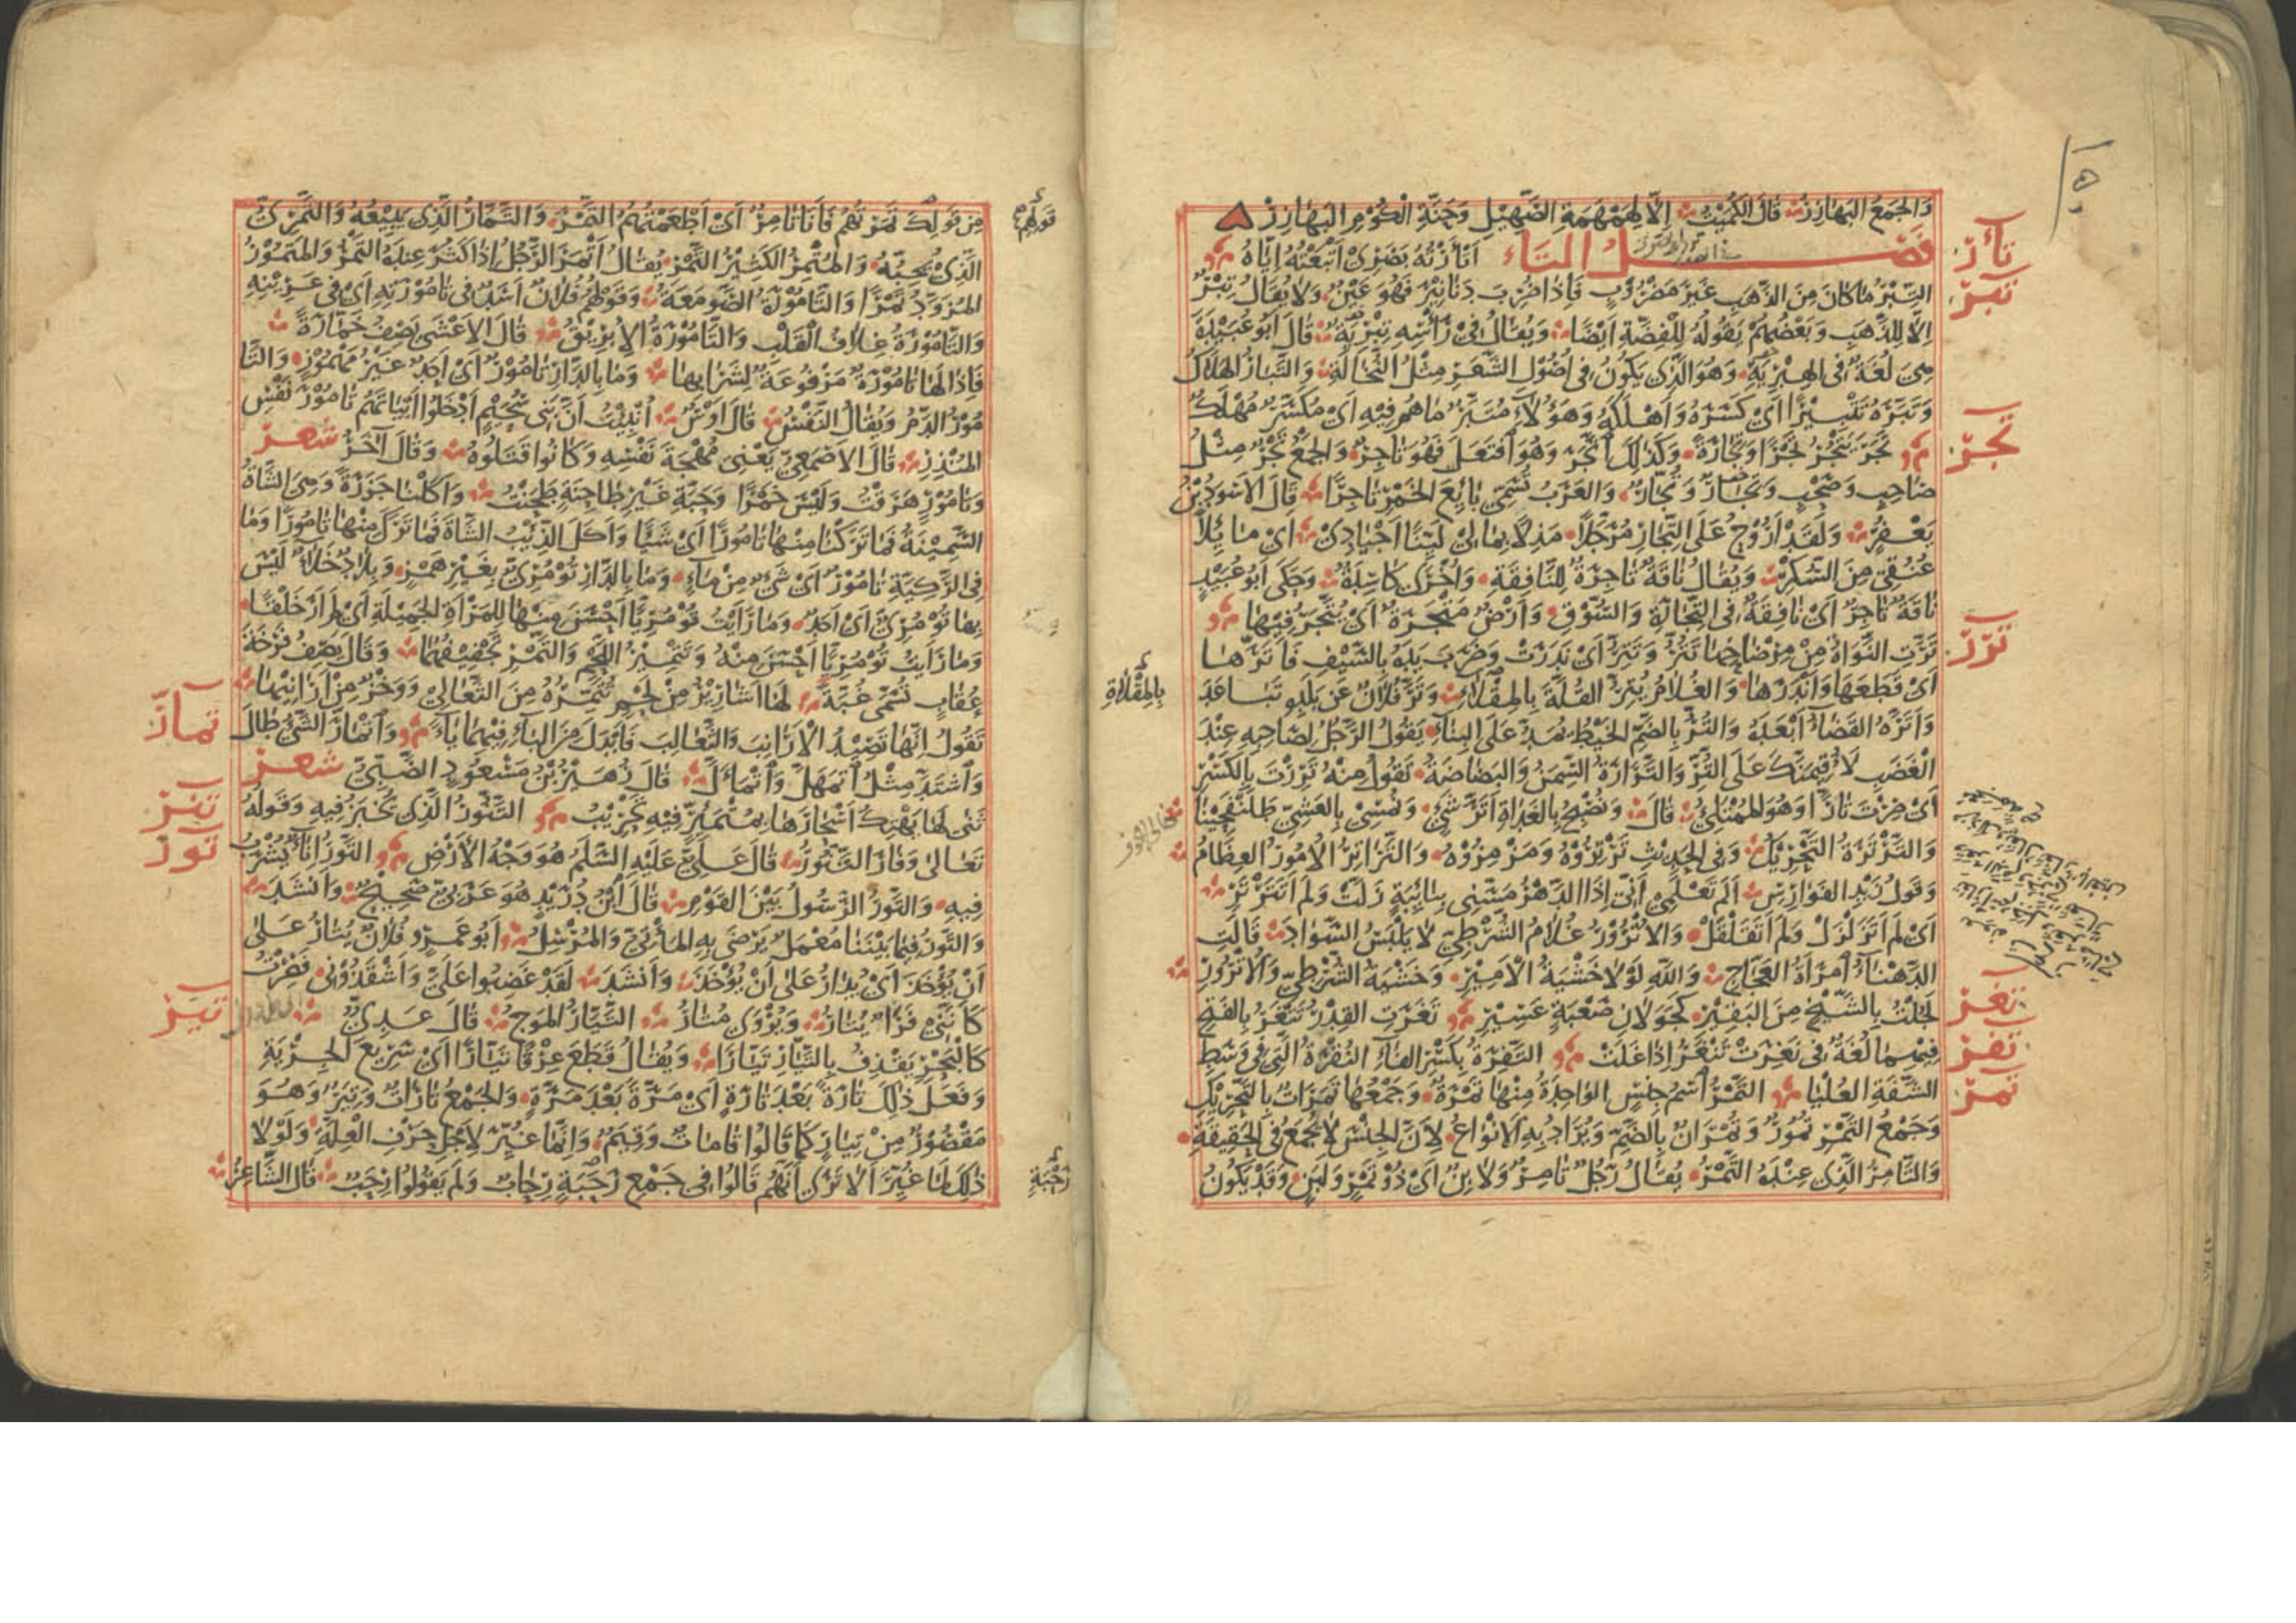 ١٥٠
وَالجَمعُ البَهازِرُ قالَ الكُمَيْتُ اِلَّا لِهَمْهَمَةِ الصَّهِيْلِ وَحَنَّةِ الكُوْمِ البَهَازِرْ
فصل التاء اَتْأَرْتُهُ بَصَرِىْ اَتْبَعْتُهُ اِيَّاهُ
تأر
التِّبْرُ مَا كانَ مِنَ الذَّهَبِ غَيْرَ مَضْرُوْبٍ فَاِذَا ضُرِبَ دَنَانِيْرَ فَهُوَ عَيْنٌ وَلَا يُقَالُ تِبْرٌ
تبر
اِلَّا لِلذَّهَبِ وَبَعْضُهُمْ يَقُولُهُ لِلْفِضَّةِ اَيْضًا وَيُقَالُ فِىْ رَأْسِهِ تِبْرِيَةٌ قالَ اَبُو عُبَيْدَةَ
هِىَ لُغَةٌ فِى الهِبْرِيَةِ وَهُوَ الَّذِى يَكُونُ فِى اُصُوْلِ الشَّعَرِ مِثْلُ النُّخَالَةِ وَالتَّبَارُ الهَلَاكُ
وَتَبَّرَهُ تَتْبِيْرًا اَىْ كَسَّرَهُ وَاَهْلَكَهُ وَهٰؤُلَاءِ مُتَبَّرٌ مَا هُمْ فِيْهِ اَىْ مُكَسَّرٌ مُهْلَكٌ
تَجَرَ يَتْجُرُ تَجْرًا وَتِجَارَةً وَكَذٰلِكَ اتَّجَرَ وَهُوَ افْتَعَلَ فَهُوَ تَاجِرٌ وَالجَمْعُ تَجْرٌ مِثْلُ
تجر
صَاحِبٍ وَصَحْبٍ وَتِجَارٌ وَتُجَّارٌ وَالعَرَبُ تُسَمِّى بَائِعَ الخَمْرِ تَاجِرًا قَالَ الاَسْوَدُ بْنُ
يَعْفُرَ وَلَقَدْ اَرُوْحُ عَلَى التِّجَارِ مُرَجَّلًا مَذِلًا بِمَالِىْ لَيِّنًا اَجْيَادِىْ اَىْ مَائِلًا
عُنُقِى مِنَ السُّكْرِ وَيُقَالُ نَاقَةٌ تَاجِرَةٌ لِلنَّافِقَةِ وَاُخْرَى كَاسِدَةٌ وَحَكَى اَبُو عُبَيْدٍ
نَاقَةٌ تَاجِرٌ اَىْ نَافِقَةٌ فِى التِّجَارَةِ وَالسُّوْقِ وَاَرْضٌ مَتْجَرَةٌ اَىْ يُتَّجَرُ فِيْهَا
تَرَّتِ النَّوَاةُ مِنْ مِرْضَاخِهَا تَتُرُّ وَتَتِرُّ اَىْ نَدَرَتْ وَضَرَبَ يَدَهُ بِالسَّيْفِ فَاَتَرَّهَا
ترر
اَىْ قَطَعَهَا وَاَنْدَرَهَا وَالغُلَامُ يُتِرُّ القُلَةَ بِالمِقْلَاءِ وَتَرَّ فُلَانٌ عَنْ بَلَدِهِ تَبَاعَدَ
بِالمِقْلَاةِ
وَاَتَرَّهُ القَضَاءُ اَبْعَدَهُ وَالتُّرُّ بِالضَّمِّ الخَيْطُ يُمَدُّ عَلَى البِنَاءِ يَقُولُ الرَّجُلُ لِصَاحِبِهِ عِنْدَ
الْغَضَبِ لَاُقِيْمَنَّكَ عَلَى التُّرِّ وَالتَّرَارَةُ السِّمَنُ وَالبَضَاضَةُ تَقُولُ مِنْهُ تَرِرْتَ بِالكَسْرِ
اَىْ صِرْتَ تَارًّا وَهُوَ المُمْتَلِئُ قَالَ وَنُصْبِحُ بِالغَدَاةِ اَتَرَّ شَىْءٍ وَنُمْسِىْ بِالعَشِىِّ طَلَنْفَحِيْنَا
وَالتَّرْتَرَةُ التَّحْرِيْكُ وَفِى الحَدِيْثِ تَرْتِرُوْهُ وَمَزْمِزُوْهُ وَالتَّرَاتِرُ الاُمُوْرُ العِظَامُ
وَقَوْلُ زَيْدِ الفَوَارِسِ اَلَمْ تَعْلَمِىْ اَنِّىْ اِذَا الدَّهْرُ مَسَّنِى بِنَائِبَةٍ زَلَّتْ وَلَمْ اَتَتَرْتَرْ
اَىْ لَمْ اَتَزَلْزَلْ وَلَمْ اَتَقَلْقَلْ وَالاُتْرُوْرُ غُلَامُ الشُّرْطِىِّ لَا يَلْبَسُ السَّوَادَ قَالَتِ
الدَّهْنَاءُ امْرَأَةُ العَجَّاجِ وَاللهِ لَوْلَا خَشْيَةُ الْاَمِيْرِ وَخَشْيَةُ الشُّرْطِىِّ وَالاُتْرُوْرِ
لَجُلْتُ بِالشَّيْخِ مِنَ البَقِيْرِ كَجَوَلَانِ صَعْبَةٍ عَسِيْرِ تَغَرَتِ القِدْرُ تَتْغَرُ بِالفَتْحِ
تغر
فِيْهِمَا لُغَةٌ فِى نَغِرَتْ تَنْغَرُ اِذَا غَلَتْ التَّفِرَةُ بِكَسْرِ الفَاءِ النُّقْرَةُ الَّتِى فِى وَسَطِ
تفر
الشَّفَةِ العُلْيَا التَّمْرُ اسْمُ جِنْسٍ الوَاحِدَةُ مِنْهَا تَمْرَةٌ وَجَمْعُهَا تَمَرَاتٌ بِالتَّحْرِيْكِ
تمر
وَجَمْعُ التَّمْرِ تُمُوْرٌ وَتُمْرَانٌ بِالضَّمِّ وَيُرَادُ بِهِ الاَنْوَاعُ لِاَنَّ الجِنْسَ لَا يُجْمَعُ فِى الحَقِيقَةِ
وَالتَّامِرُ الَّذِى عِنْدَهُ التَّمْرُ يُقَالُ رَجُلٌ تَامِرٌ وَلَابِنٌ اَىْ ذُوْ تَمْرٍ وَلَبَنٍ وَقَدْ يَكُونُ
مِنْ قَوْلِكَ تَمَرْتُهُمْ فَاَنَا تَامِرٌ اَىْ اَطْعَمْتُهُمُ التَّمْرَ وَالتَّمَّارُ الَّذِى يَبِيْعُهُ وَالتَّمْرِىُّ
قَوْلِهِمْ
الَّذِىْ يُحِبُّهُ وَالمُتْمِرُ الكَثِيْرُ التَّمْرِ يُقَالُ اَتْمَرَ الرَّجُلُ اِذَا كَثُرَ عِنْدَهُ التَّمْرُ وَالمَتْمُوْرُ
المُزَوَّدُ تَمْرًا وَالتَّامُوْرَةُ الصَّوْمَعَةُ وَقَوْلُهُمْ فُلَانٌ اَسَدٌ فِى تَامُوْرَتِهِ اَىْ فِى عَرِيْنِهِ
وَالتَّامُوْرَةُ غِلَافُ القَلْبِ وَالتَّامُوْرَةُ الاِبْرِيْقُ قَالَ الاَعْشَى يَصِفُ خَمَّارَةً
فَاِذَا لَهَا تَامُوْرَةٌ مَرْفُوعَةٌ لِشَرَابِهَا وَمَا بِالدَّارِ تَامُوْرٌ اَىْ اَحَدٌ غَيْرُ مَهْمُوْزٍ وَالتَّا
مُوْرُ الدَّمُ وَيُقَالُ النَّفْسُ قَالَ اَوْسٌ اُنْبِئْتُ اَنَّ بَنِى سُحَيْمٍ اَدْخَلُوا اَبْيَاتَهُمْ تَامُوْرَ نَفْسِ
المُنْذِرِ قَالَ الاَصْمَعِىُّ يَعْنِى مُهْجَةَ نَفْسِهِ وَكَانُوا قَتَلُوهُ وَقَالَ آخَرُ شعر
وَتَامُوْرٍ هَرَقْتُ وَلَيْسَ خَمْرًا وَحَبَّةِ غَيْرِ طَاحِنَةٍ طَحَنْتُ وَاَكَلْنَا جَزَرَةً وَهِىَ الشَّاةُ
السَّمِيْنَةُ فَمَا تَرَكْنَا مِنْهَا تَامُورًا اَىْ شَيْئًا وَاَكَلَ الذِّئْبُ الشَّاةَ فَمَا تَرَكَ مِنْهَا تَامُورًا وَمَا
فِى الرَّكِيَّةِ تَامُوْرٌ اَىْ شَىْءٌ مِنْ مَاءٍ وَمَا بِالدَّارِ تُوْمُرِىٌّ بِغَيْرِ هَمْزٍ وَبِلَادٌ خَلَاءٌ لَيْسَ
بِهَا تُوْمُرِىٌّ اَىْ اَحَدٌ وَمَا رَأَيْتُ تُوْمُرِيًّا اَحْسَنَ مِنْهَا لِلمَرْأَةِ الجَمِيْلَةِ اَىْ لَمْ اَرَ خَلْقًا
وَمَا رَأَيْتُ تُوْمُرِيًّا اَحْسَنَ مِنْهُ وَتَتْمِيْرُ اللَّحْمِ وَالتَّمْرِ تَجْفِيْفُهُمَا وَقَالَ يَصِفُ فَرْخَةَ
عُقَابٍ تُسَمَّى غُبَّةَ لَهَا اَشَارِيْرُ مِنْ لَحْمٍ تُتَمِّرُهُ مِنَ الثَّعَالِىْ وَوَخْزٌ مِنْ اَرَانِيْهَا
تَقُولُ اِنَّهَا تَصِيْدُ الْاَرَانِبَ وَالثَّعَالِبَ فَاَبْدَلَ مِنَ البَاءِ فِيْهِمَا يَاءً وَاتْمَأَرَّ الشَّىْءُ طَالَ
تمأرّ
وَاشْتَدَّ مِثْلُ اتْمَهَلَّ وَاتْمَأَلَّ قَالَ زُهَيْرُ بْنُ مَسْعُودٍ الضَّبِّىُّ شعر
ثَنَّى لَهَا يَهْتِكُ اَسْحَارَهَا بِمُتْمَئِرٍّ فِيْهِ تَحْزِيْبُ التَّنُّورُ الَّذِى يُخْبَزُ فِيْهِ وَقَوْلُهُ
تنر
تَعَالَى وَفَارَ التَّنُّورُ قَالَ عَلِىٌّ عَلَيْهِ السَّلَمُ هُوَ وَجْهُ الاَرْضِ التَّوْرُ اِنَاءٌ يُشْرَبُ
تور
فِيهِ وَالتَّوْرُ الرَّسُولُ بَيْنَ القَوْمِ قَالَ ابْنُ دُرَيْدٍ هُوَ عَرَبِىٌّ صَحِيْحٌ وَاَنْشَدَ
وَالتَّوْرُ فِيمَا بَيْنَنَا مُعْمَلٌ يَرْضَى بِهِ المَأْتِىُّ وَالمُرْسِلُ اَبُو عَمْرٍو فُلَانٌ يُتَارُ عَلَى
اَنْ يُؤْخَذَ اَىْ يُدَارُ عَلَى اَنْ يُؤْخَذَ وَاَنْشَدَ لَقَدْ غَضِبُوا عَلَىَّ وَاَشْقَذُوْنِى فَصِرْتُ
كَاَنَّنِى فَرَأٌ يُتَارُ وَيُرْوَى مُتَارُ التَّيَّارُ المَوْجُ قَالَ عَدِىٌّ
تير
كَالْبَحْرِ يَقْذِفُ بِالتَّيَّارِ تَيَّارَا وَيُقَالُ قَطَعَ عِرْقًا تَيَّارًا اَىْ سَرِيعَ الجِرْيَةِ
وَفَعَلَ ذٰلِكَ تَارَةً بَعْدَ تَارَةٍ اَىْ مَرَّةً بَعْدَ مَرَّةٍ وَالجَمْعُ تَارَاتٌ وَتِيَرٌ وَهُوَ
مَقْصُوْرٌ مِنْ تِيَارٍ كَمَا قَالُوا قَامَاتٌ وَقِيَمٌ وَاِنَّمَا غُيِّرَ لِاَجْلِ حَرْفِ العِلَّةِ وَلَوْلَا
ذٰلِكَ لَمَا غُيِّرَ اَلَا تَرَى اَنَّهُمْ قَالُوا فِى جَمْعِ رَحَبَةٍ رِحَابٌ وَلَمْ يَقُولُوا رِحَبٌ قَالَ الشَّاعِرُ
رَحَبَةٍ